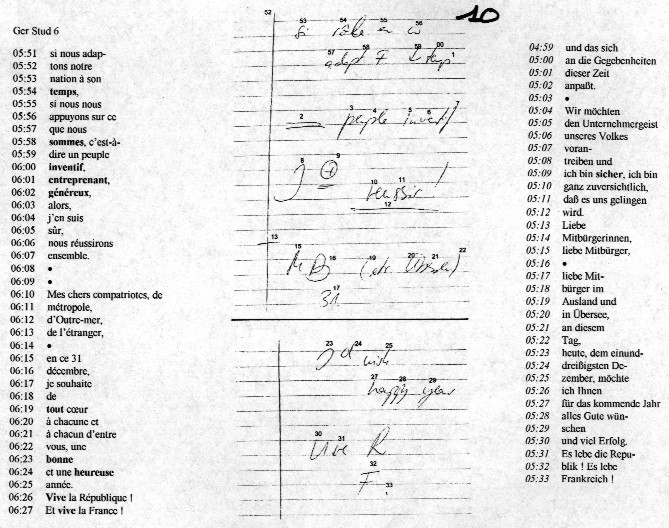 10
Ger Stud 6
05:51 si nous adap-
05:52 tons notre
05:53 nation à son
05:54 temps,
05:55 si nous nous
05:56 appuyons sur ce
05:57 que nous
05:58 sommes, c'est-à-
05:59 dire un peuple
06:00 inventif,
06:01 entreprenant,
06:02 généreux,
06:03 alors,
06:04 j'en suis
06:05 sûr,
06:06 nous réussirons
06:07 ensemble.
06:08 •
06:09 •
06:10 Mes chers compatriotes, de
06:11 métropole,
06:12 d'Outre-mer,
06:13 de l'étranger,
06:14 •
06:15 en ce 31
06:16 décembre,
06:17 je souhaite
06:18 de
06:19 tout cœur
06:20 à chacune et
06:21 à chacun d'entre
06:22 vous, une
06:23 bonne
06:24 et une heureuse
06:25 année.
06:26 Vive la République !
06:27 Et vive la France !
52
53 54 55 56
si
57 58 59 00 1
adapt F
2 3 4 5 6 7
people invent
8 9
10 11
réussir !
12
13
15 16 19 20 21 22
17
31
23 24 25
wish
27 28 29
happy year
30 31
Vive R
32
F.
33
04:59 und das sich
05:00 an die Gegebenheiten
05:01 dieser Zeit
05:02 anpaßt.
05:03 •
05:04 Wir möchten
05:05 den Unternehmergeist
05:06 unseres Volkes
05:07 voran-
05:08 treiben und
05:09 ich bin sicher, ich bin
05:10 ganz zuversichtlich,
05:11 daß es uns gelingen
05:12 wird.
05:13 Liebe
05:14 Mitbürgerinnen,
05:15 liebe Mitbürger,
05:16 •
05:17 liebe Mit-
05:18 bürger im
05:19 Ausland und
05:20 in Übersee,
05:21 an diesem
05:22 Tag,
05:23 heute, dem einund-
05:24 dreißigsten De-
05:25 zember, möchte
05:26 ich Ihnen
05:27 für das kommende Jahr
05:28 alles Gute wün-
05:29 schen
05:30 und viel Erfolg.
05:31 Es lebe die Repu-
05:32 blik ! Es lebe
05:33 Frankreich !